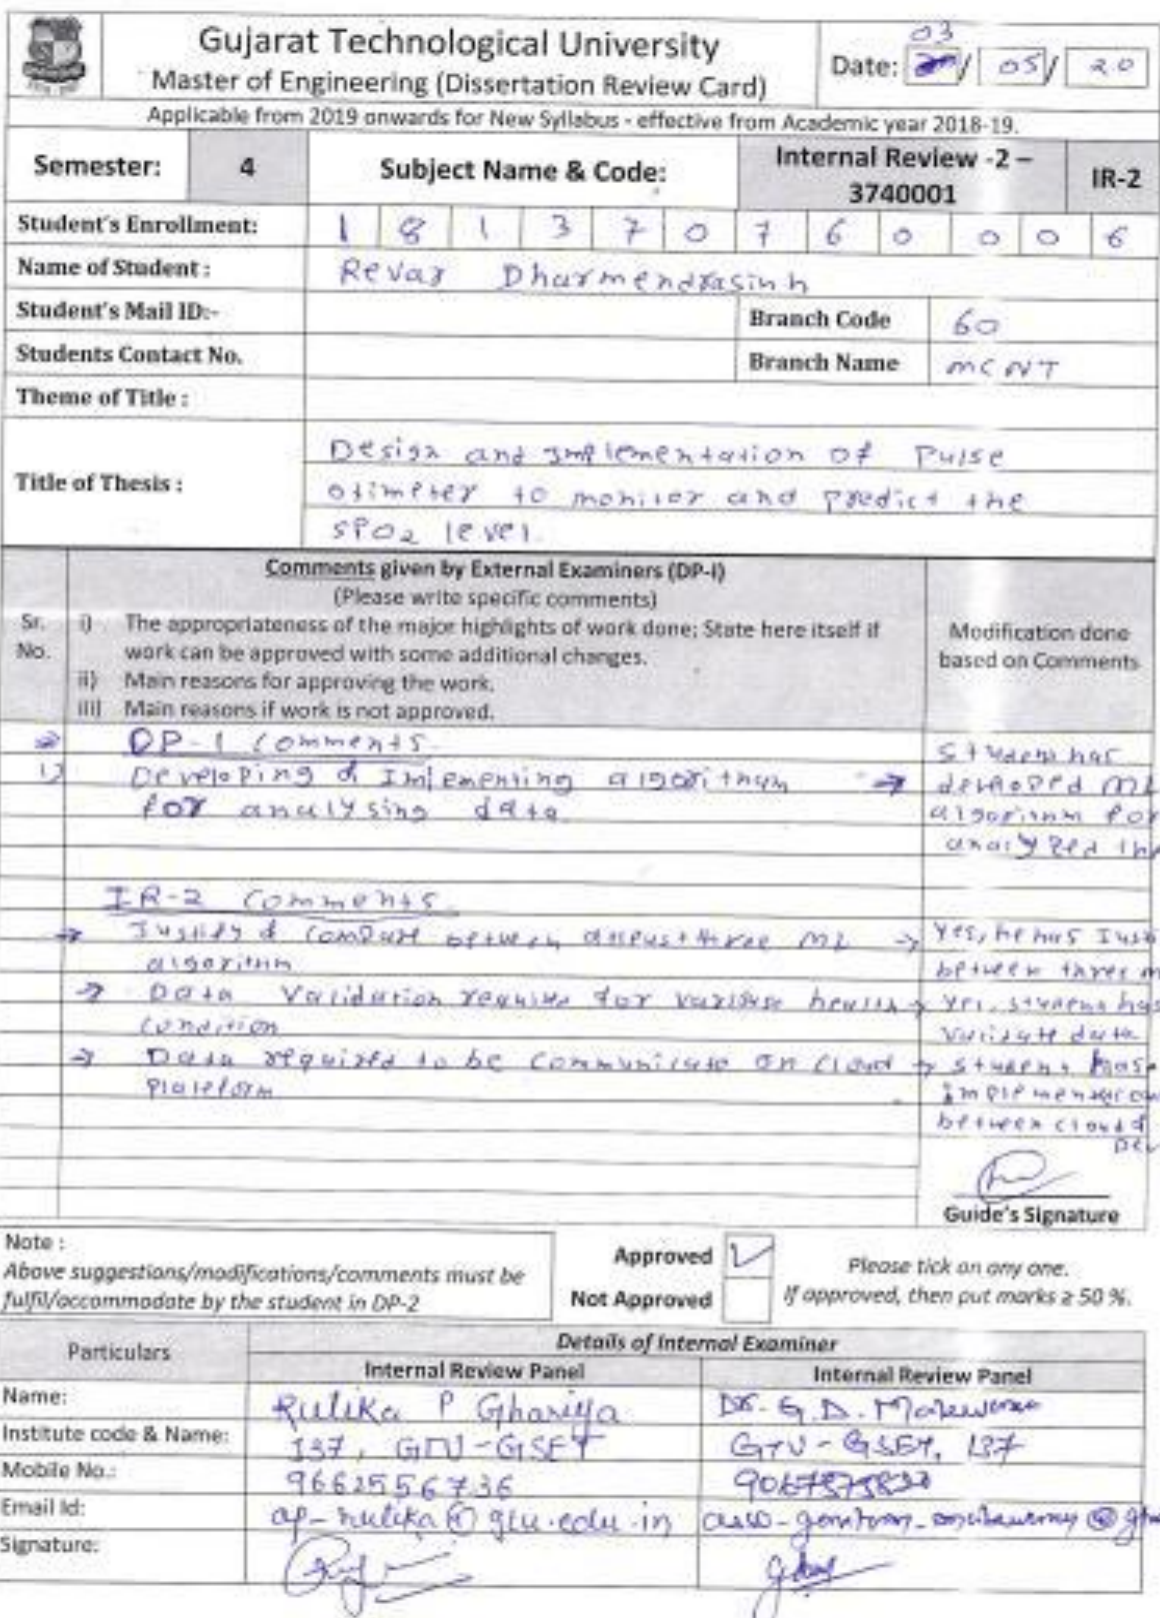 Gujarat Technological University
Master of Engineering (Dissertation Review Card)
Date: 03 / 05 / 20
Applicable from 2019 onwards for New Syllabus - effective from Academic year 2018-19.
Semester: 4 Subject Name & Code: Internal Review -2 – 3740001 IR-2
Student's Enrollment: 1 8 1 3 7 0 7 6 0 0 0 6
Name of Student : Revar Dharmendrasinh
Student's Mail ID:- Branch Code 60
Students Contact No. Branch Name MCNT
Theme of Title :
Title of Thesis :
Design and Implementation of Pulse
oximeter to monitor and predict the
SPO2 level.
Comments given by External Examiners (DP-I)
(Please write specific comments)
Sr. No.
i) The appropriateness of the major highlights of work done; State here itself if
work can be approved with some additional changes.
ii) Main reasons for approving the work.
iii) Main reasons if work is not approved.
Modification done
based on Comments
DP-1 Comments
1) Developing & Implementing algorithm →
for analysing data
student has
developed ML
algorithm for
analyzed the
IR-2 Comments
→ Justify & compare between three ML →
algorithm
Yes, he has
between three
→ Data Validation require for various health →
condition
Yes, student has
validate data
→ Data required to be communicate on cloud →
Plateform
student has
between cloud &
Guide's Signature
Note :
Above suggestions/modifications/comments must be
fulfil/accommodate by the student in DP-2
Approved ✓
Not Approved
Please tick on any one.
If approved, then put marks ≥ 50 %.
Particulars Details of Internal Examiner
Internal Review Panel Internal Review Panel
Name: Rutika P Ghariya Dr. G.D.
Institute code & Name: 137, GTU-GSET GTU-GSET, 137
Mobile No.: 9662556736
Email Id: ap_rutika@gtu.edu.in
Signature: